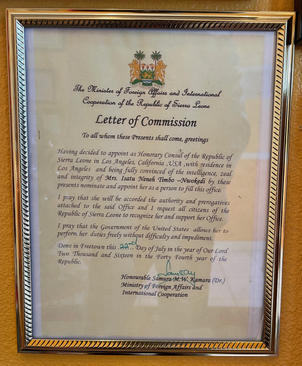 The Minister of Foreign Affairs and International
Cooperation of the Republic of Sierra Leone
Letter of Commission
To all whom these Presents shall come, greetings
Having decided to appoint as Honorary Consul of the Republic of
Sierra Leone in Los Angeles, California ,USA ,with residence in
Los Angeles and being fully convinced of the intelligence, zeal
and integrity of Mrs. Isatu Nimeh Timbo –Nwokedi by these
presents nominate and appoint her as a person to fill this office.
I pray that she will be accorded the authority and prerogatives
attached to the said Office and I request all citizens of the
Republic of Sierra Leone to recognize her and support her Office.
I pray that the Government of the United States allows her to
perform her duties freely without difficulty and impediment.
Done in Freetown this 22nd Day of July in the year of our Lord
Two Thousand and Sixteen in the Forty Fourth year of the
Republic.
Honourable Samura M.W. Kamara (Dr.)
Ministry of Foreign Affairs and
International Cooperation